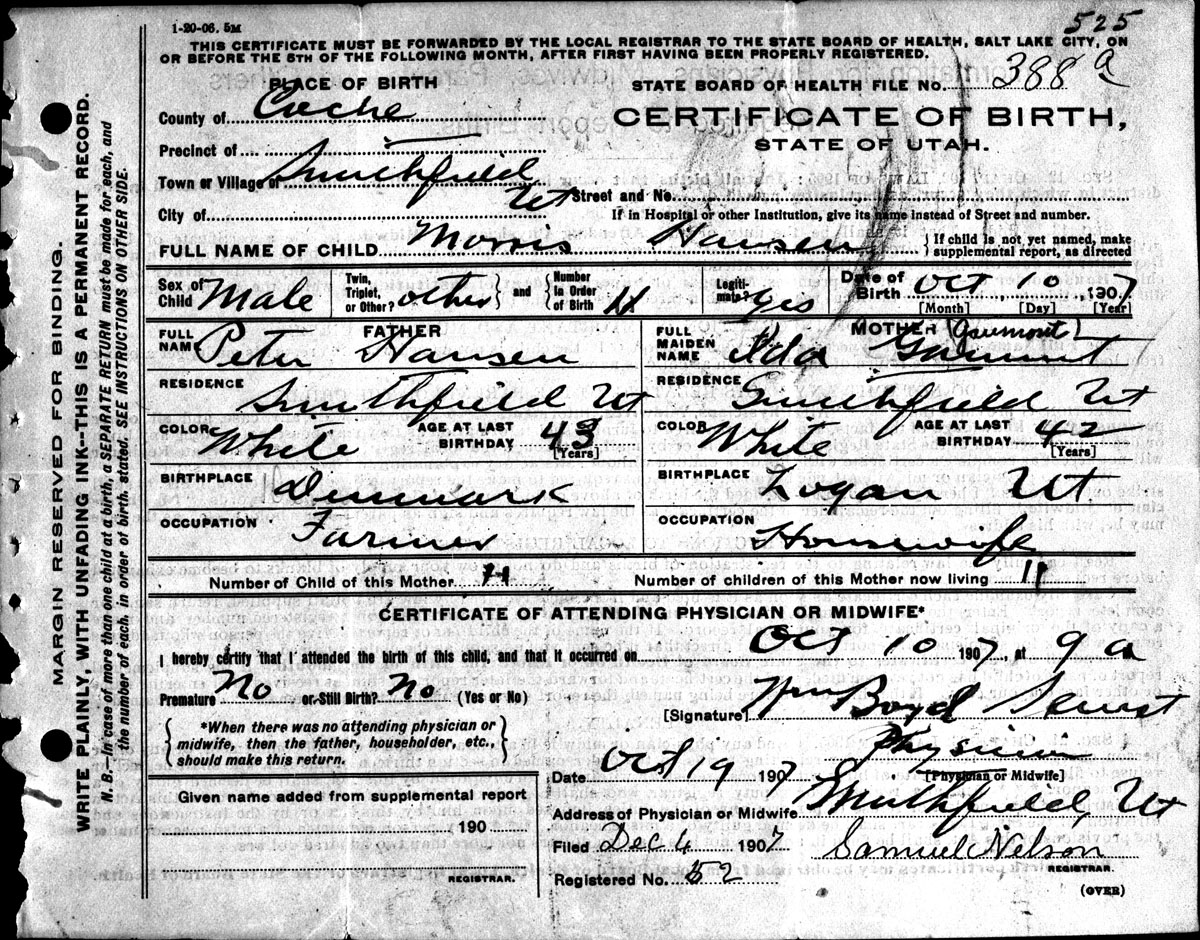 1-20-06. 5M
525
THIS CERTIFICATE MUST BE FORWARDED BY THE LOCAL REGISTRAR TO THE STATE BOARD OF HEALTH, SALT LAKE CITY, ON
OR BEFORE THE 5TH OF THE FOLLOWING MONTH, AFTER FIRST HAVING BEEN PROPERLY REGISTERED.
PLACE OF BIRTH
STATE BOARD OF HEALTH FILE No. 388 a
County of Cache
CERTIFICATE OF BIRTH,
STATE OF UTAH.
Precinct of
Town or Village of Smithfield
Ut Street and No.
City of
If in Hospital or other Institution, give its name instead of Street and number.
FULL NAME OF CHILD Morris Hansen { If child is not yet named, make supplemental report, as directed
Sex of Child Male Twin, Triplet, or Other? other } and { Number in Order of Birth 11 Legitimate? yes Date of Birth Oct, 10, 1907
[Month] [Day] [Year]
FATHER
FULL NAME Peter Hansen
MOTHER (Gaumont)
FULL MAIDEN NAME Ida
RESIDENCE Smithfield Ut
RESIDENCE Smithfield Ut
COLOR White AGE AT LAST BIRTHDAY 43 [Years]
COLOR White AGE AT LAST BIRTHDAY 42 [Years]
BIRTHPLACE Denmark
BIRTHPLACE Logan Ut
OCCUPATION Farmer
OCCUPATION Housewife
Number of Child of this Mother 11 Number of children of this Mother now living 11
CERTIFICATE OF ATTENDING PHYSICIAN OR MIDWIFE*
I hereby certify that I attended the birth of this child, and that it occurred on Oct 10 1907, at 9 a
Premature No or Still Birth? No (Yes or No)
[Signature] Wm Boyd
{ *When there was no attending physician or midwife, then the father, householder, etc., should make this return. }
Physician
[Physician or Midwife]
Date Oct 19 1907
Given name added from supplemental report
Address of Physician or Midwife Smithfield, Ut
190
Filed Dec 4 1907 Samuel Nelson
REGISTRAR.
Registered No. 52
REGISTRAR.
(OVER)
MARGIN RESERVED FOR BINDING.
WRITE PLAINLY, WITH UNFADING INK--THIS IS A PERMANENT RECORD.
N. B.—In case of more than one child at a birth, a SEPARATE RETURN must be made for each, and
the number of each, in order of birth, stated. SEE INSTRUCTIONS ON OTHER SIDE.